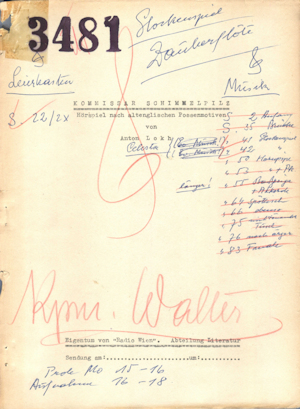 3481
Glockenspiel
Zauberflöte
&
Leierkasten
&
Musik
S 22/2x
KOMMISSAR SCHIMMELPILZ
Hörspiel nach altenglischen Possenmotiven
von
Anton Lokh
Celesta
länger!
S 2 Anfang
S 35 Brücke
" 41 Glockenspiel
" 42 "
" 50
" 53
" 55
" 64
" 66
" 75
" 76
" 83 Fanale
Kpm. Walter
Eigentum von "Radio Wien". Abteilung Literatur
Sendung am:......................um:..........
Probe Mo 15 - 16
Aufnahme 16 - 18